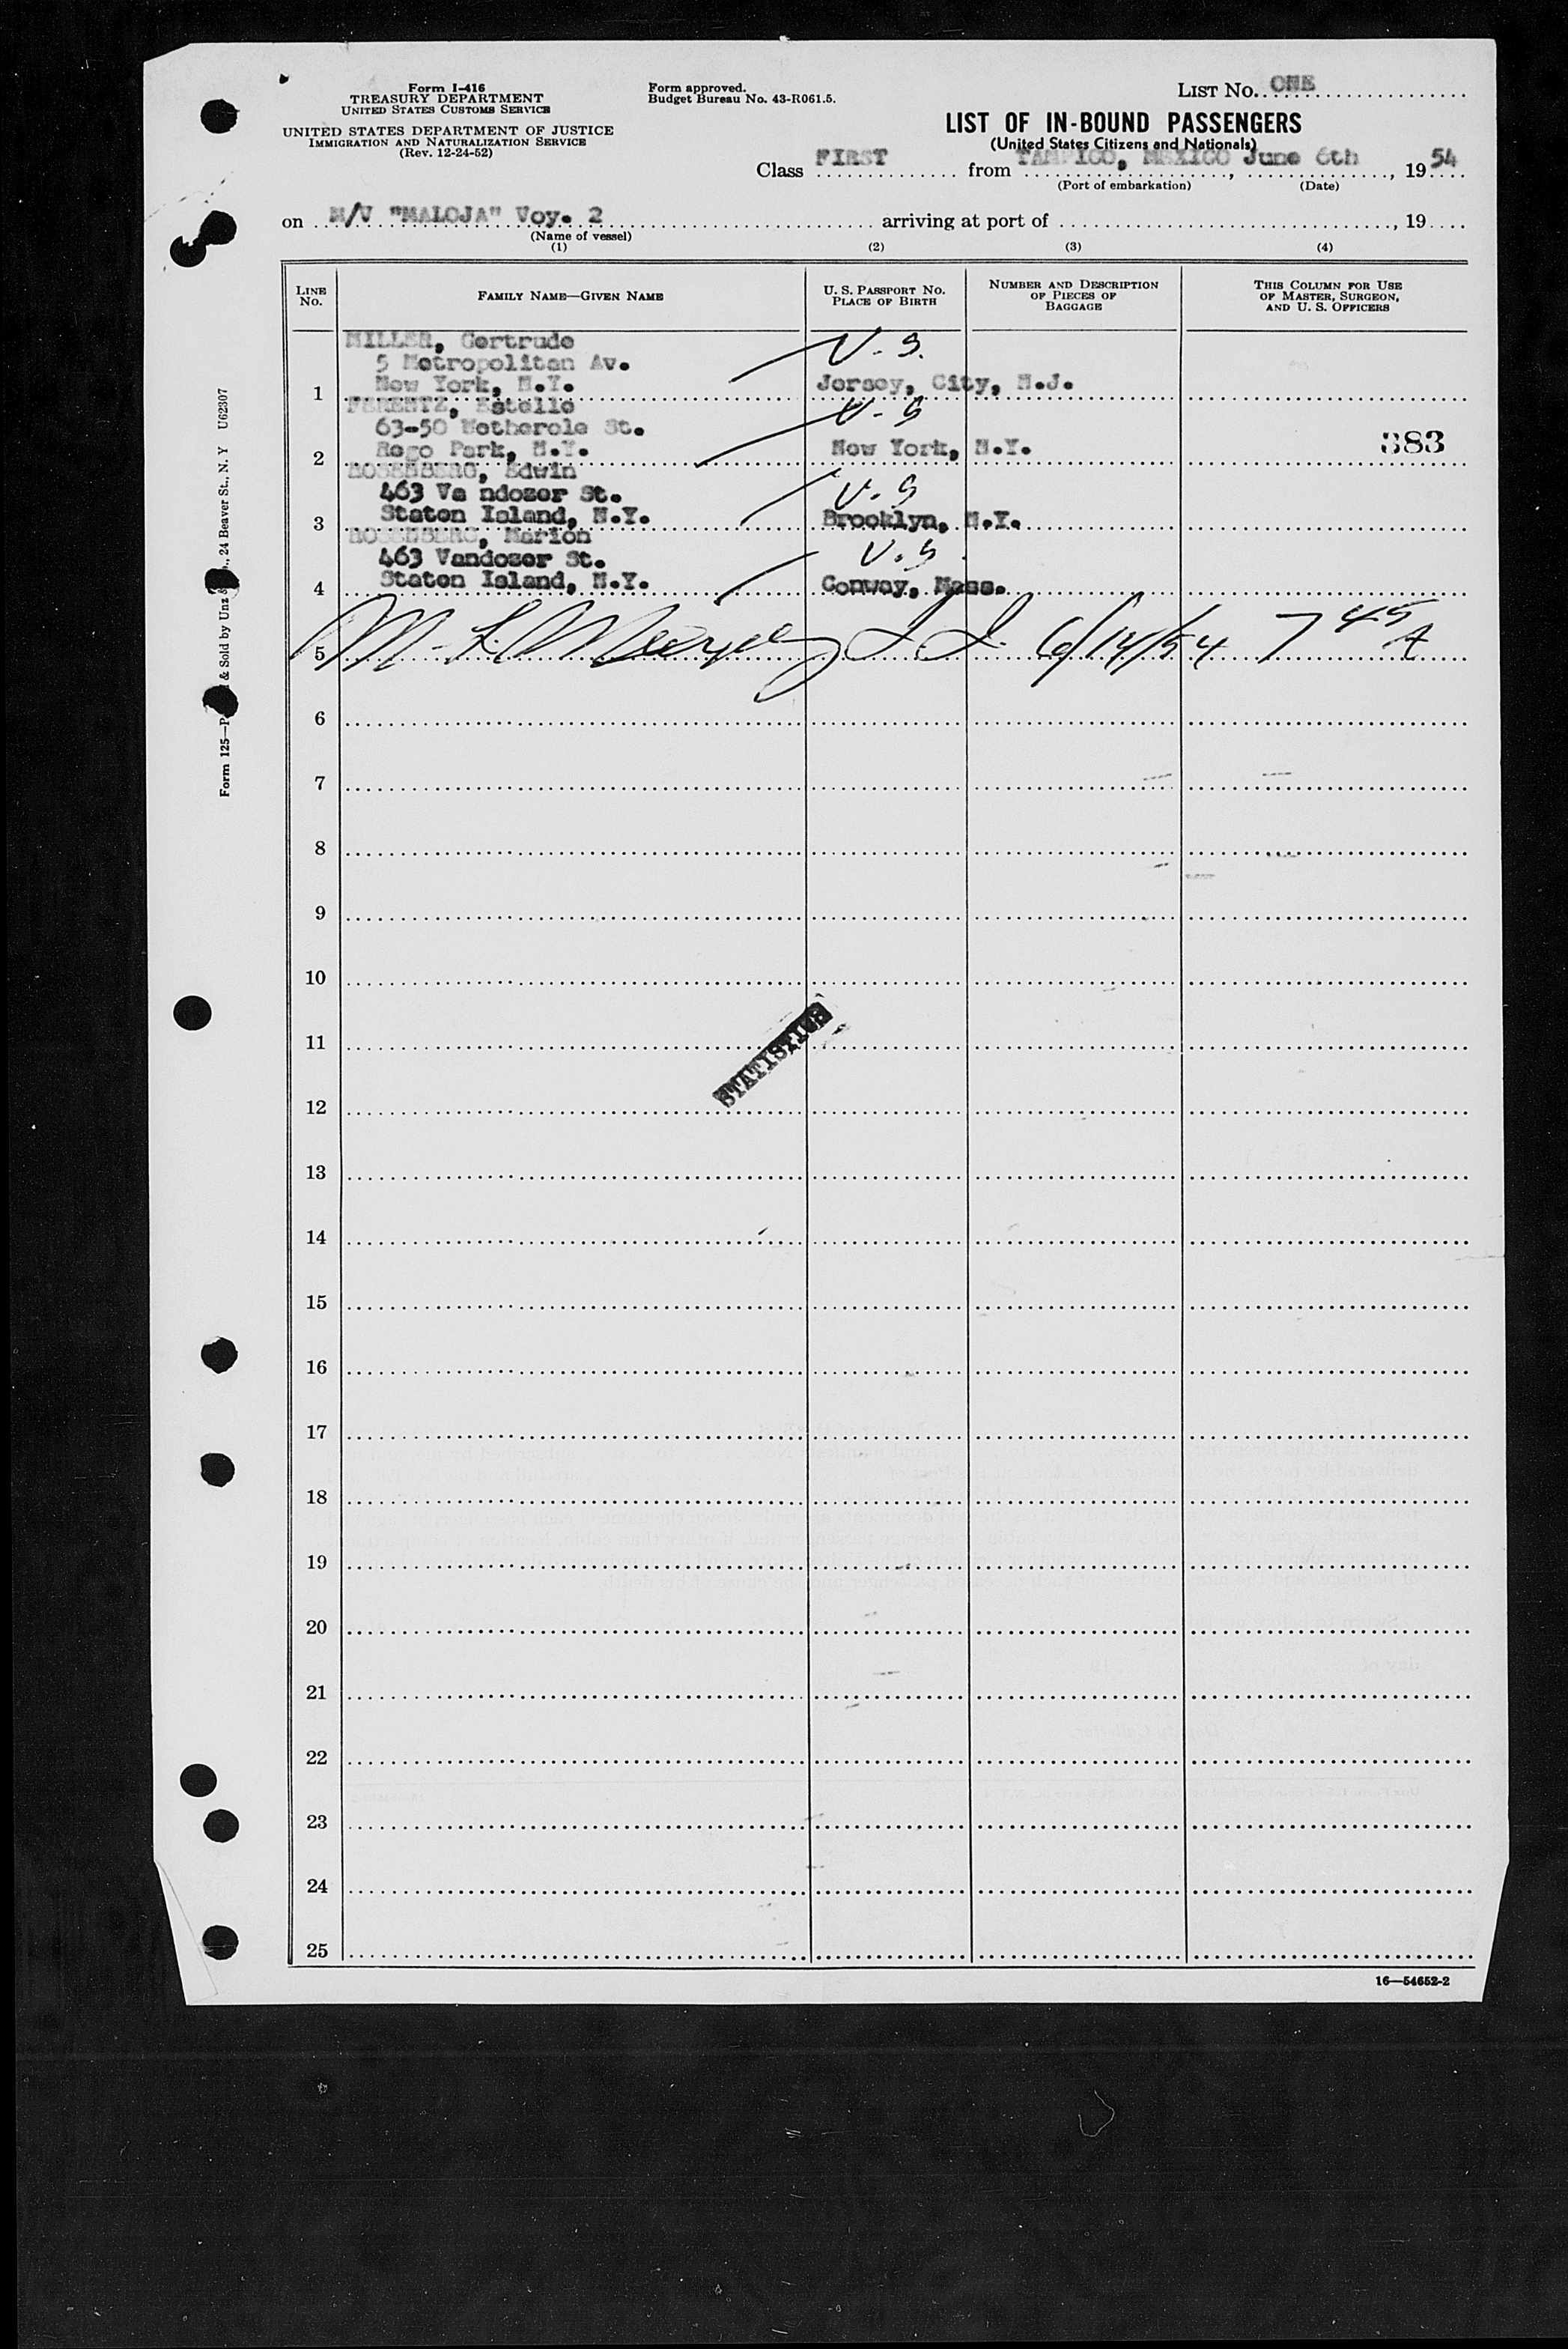 Form I-416
TREASURY DEPARTMENT
UNITED STATES CUSTOMS SERVICE
UNITED STATES DEPARTMENT OF JUSTICE
IMMIGRATION AND NATURALIZATION SERVICE
(Rev. 12-24-52)
Form approved.
Budget Bureau No. 43-R061.5.
LIST NO. ONE
LIST OF IN-BOUND PASSENGERS
(United States Citizens and Nationals)
Class FIRST from TAMPICO, MEXICO June 6th, 1954
(Port of embarkation) (Date)
on M/V "MALOJA" Voy. 2 arriving at port of , 19
(Name of vessel)
(1) (2) (3) (4)
LINE No.
FAMILY NAME—GIVEN NAME
U. S. PASSPORT NO.
PLACE OF BIRTH
NUMBER AND DESCRIPTION
OF PIECES OF
BAGGAGE
THIS COLUMN FOR USE
OF MASTER, SURGEON,
AND U. S. OFFICERS
MILLER, Gertrude
5 Metropolitan Av. U.S.
1 New York, N.Y. Jersey, City, N.J.
Estelle U-S
63-50 Wetherole St.
2 Rego Park, N.Y. New York, N.Y. 383
ROSENBERG, Edwin
463 Va ndozer St. U.S
3 Staten Island, N.Y. Brooklyn, N.Y.
ROSENBERG, Marion
463 Vandozer St. U.S
4 Staten Island, N.Y. Conway, Mass.
5 M. L. 6/14/54 7 45 A
6
7
8
9
10
11
STATISTICS
12
13
14
15
16
17
18
19
20
21
22
23
24
25
16—54652-2
Form 125— & Sold by Unz , 24 Beaver St., N. Y U62307